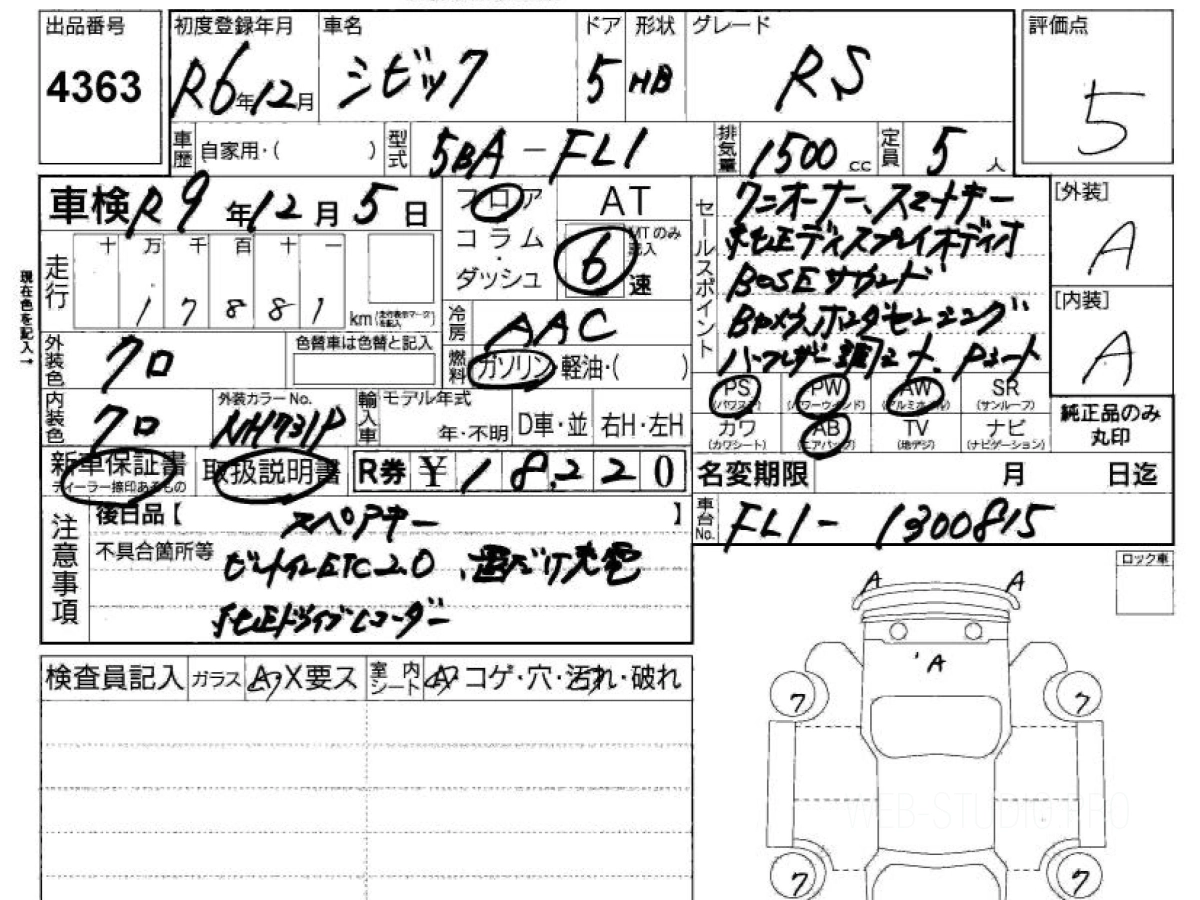 出品番号 4363
初度登録年月 R6年12月
車名 シビック
ドア 5
形状 HB
グレード RS
評価点 5
車歴 自家用・( )
型式 5BA-FL1
排気量 1500 cc
定員 5人
車検 R9年12月5日
フロア
コラム
・
ダッシュ
AT
MTのみ記入
6速
セールスポイント
ワンオーナー、スマートキー
純正ディスプレイオーディオ
BOSEサウンド
Bカメラ、ホンダセンシング
ハーフレザー調シート、Pシート
[外装]
A
[内装]
A
現在色を記入→
走行 十 万 千 百 十 一
1 7 8 8 1 km (走行表示マークを記入)
冷房 AAC
燃料 ガソリン・軽油・( )
外装色 クロ
色替車は色替と記入
内装色 クロ
外装カラーNo. NH731P
輸入車 モデル年式
年・不明
D車・並
右H・左H
PS (パワステ)
PW (パワーウインド)
AW (アルミホイル)
SR (サンルーフ)
カワ (カワシート)
AB (エアバッグ)
TV (地デジ)
ナビ (ナビゲーション)
純正品のみ
丸印
新車保証書
ディーラー捺印あるもの
取扱説明書
R券 ¥18,220
名変期限 月 日迄
車台No. FL1-1300815
注意事項
後日品【 スペアキー 】
不具合箇所等 ビルトインETC2.0、置だけ充電
純正ドライブレコーダー
ロック車
検査員記入 ガラス A・X要ス 室内シート A・コゲ・穴・汚れ・破れ
A A
A
ワ ワ
ワ ワ
WEB-STUDIO.PRO